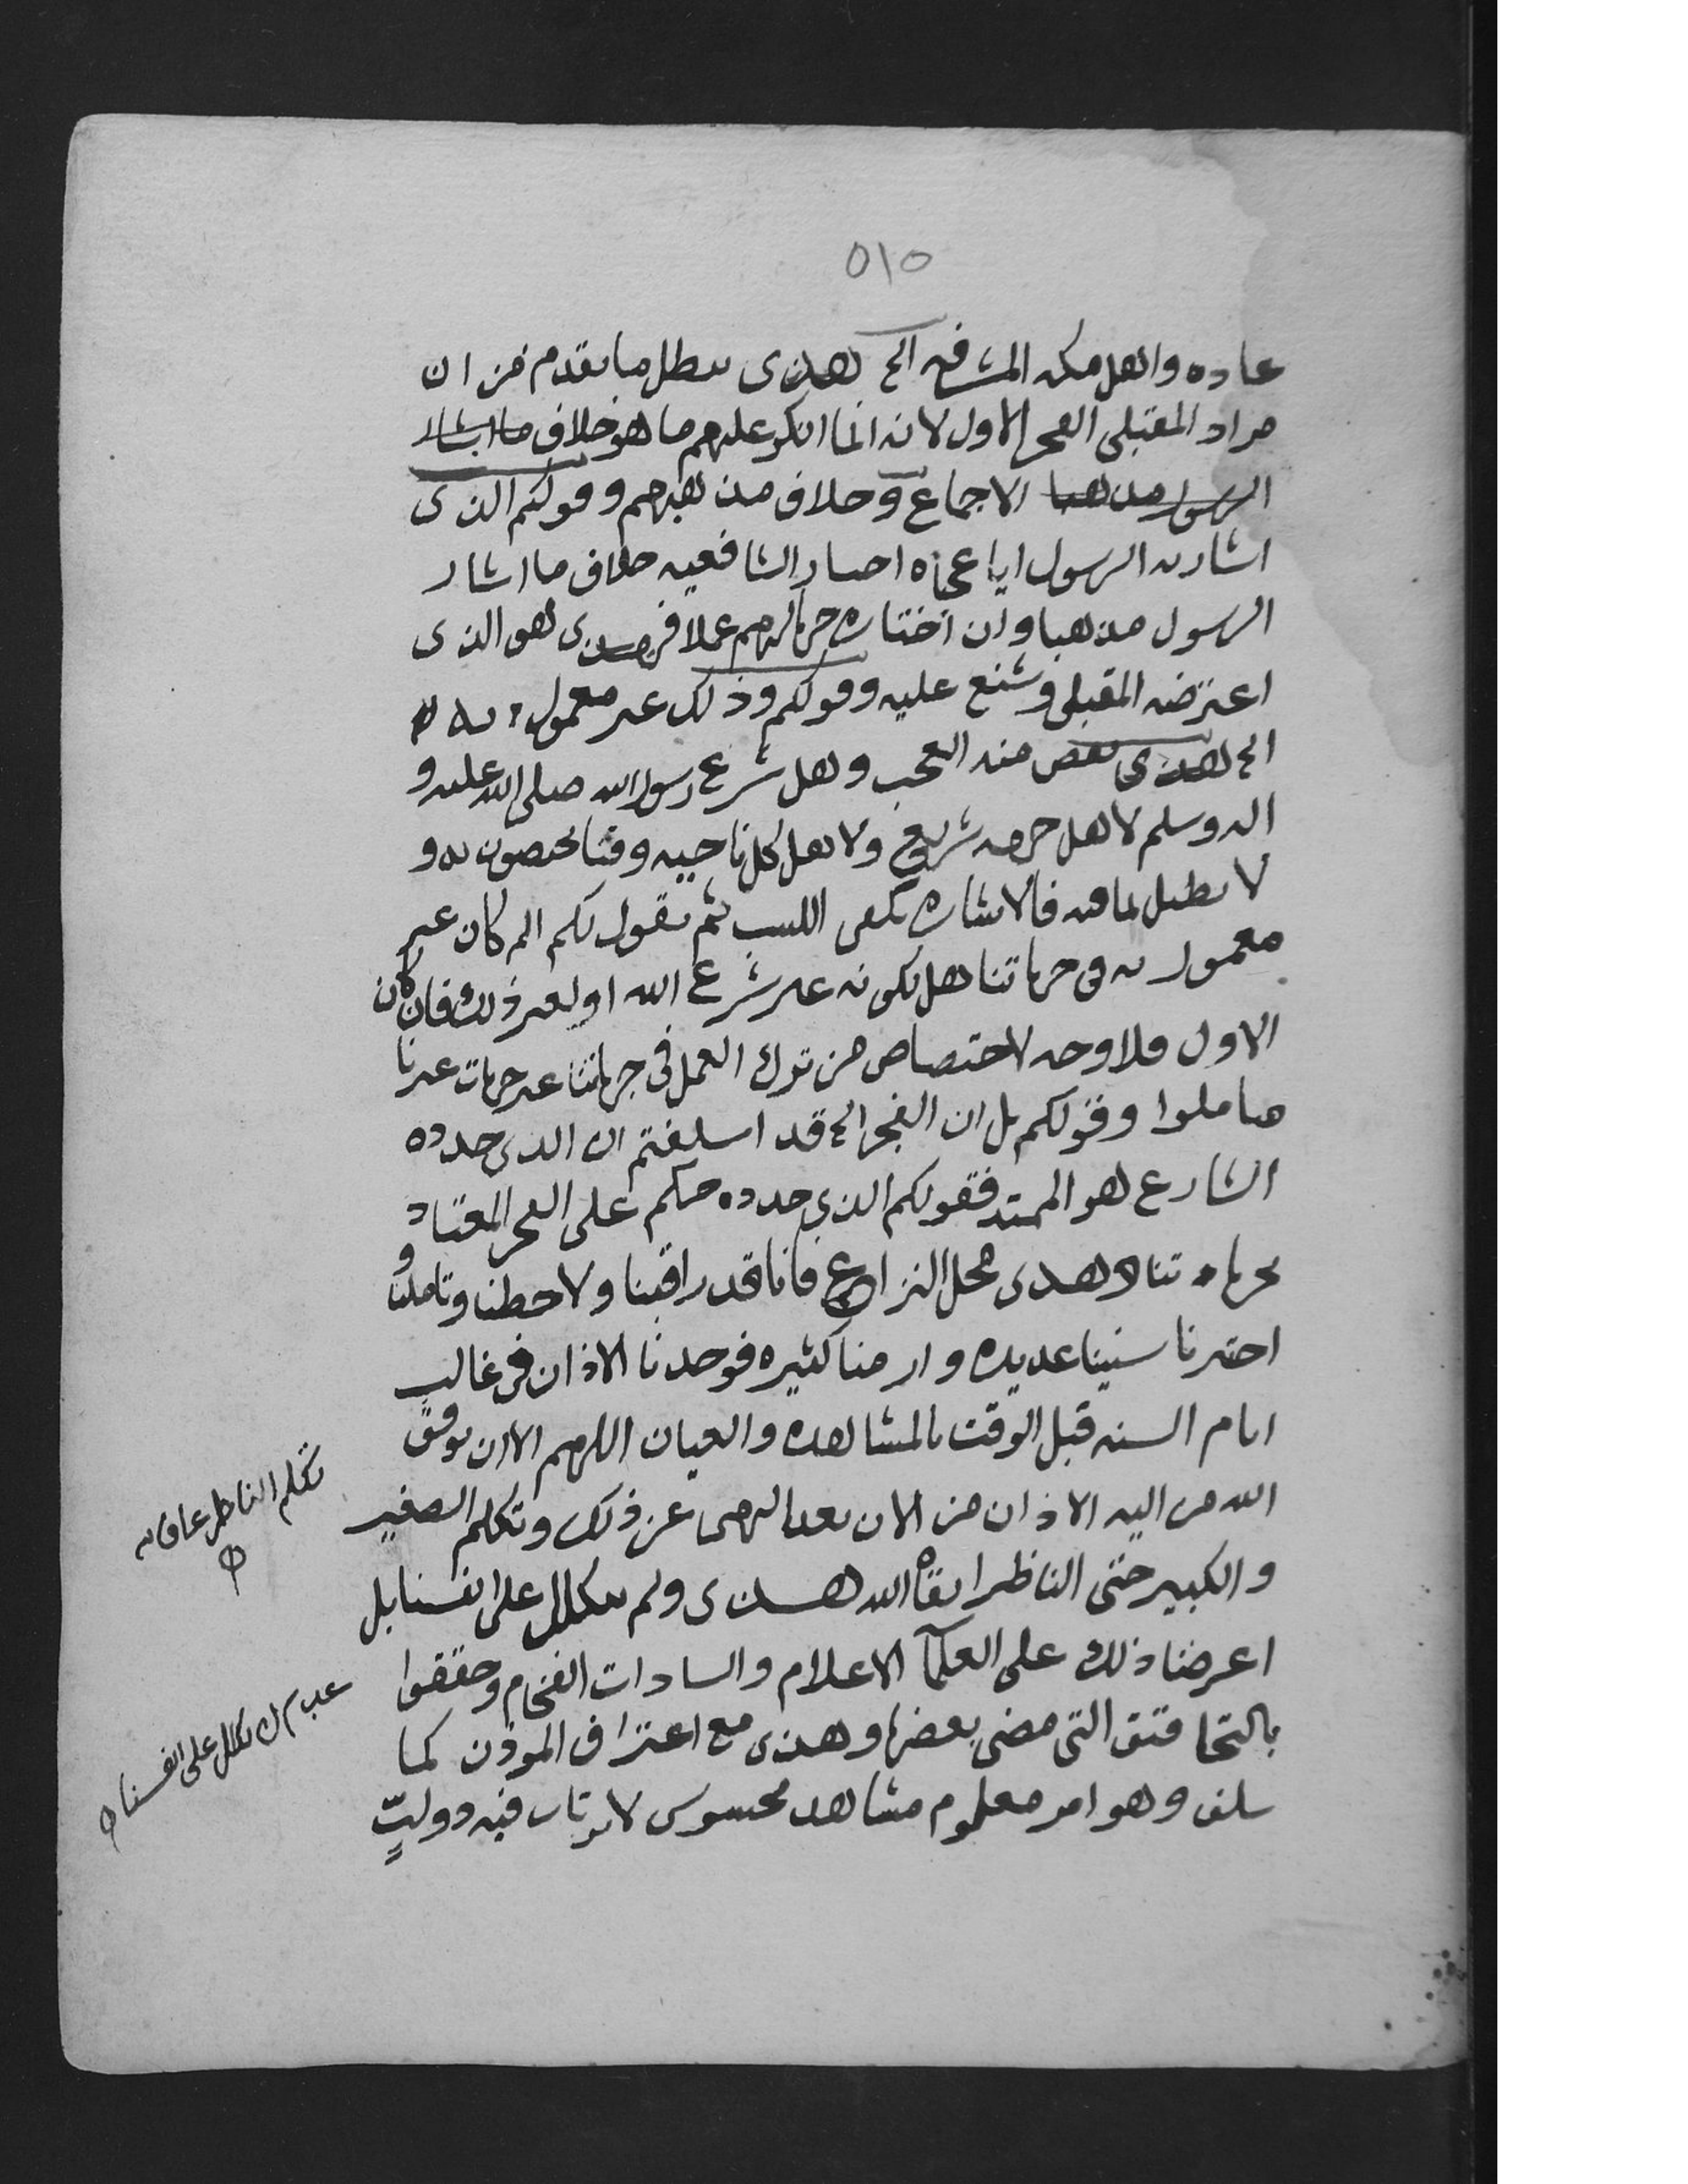 ٥١٥
عاده واهل مكه المشرفه الخ هذى يبطل ما يقدم من ان
مراد المقبلي الفجر الاول لانه انما انكر عليهم ما هو خلاف ما اشار
الرسول مذهبا الاجماع وخلاف مذهبهم وقولكم الذى
اشار به الرسول ايا عجباه احصار الشافعيه خلاف ما اشار
الرسول مذهبا وان اختاره عملا فهذى هو الذى
اعترضه المقبلي وشنع عليه وقولكم وذلك غير معمول به
الخ هذى يعض منه العجب وهل شرع رسول الله صلى الله عليه و
اله وسلم لاهل جهه شريع ولاهل كل ناحيه وقتا يختصون به و
لا نطيل لما فيه فالاشاره تكفى اللبيب ثم نقول لكم الم كان غير
معمول به فى جهاتنا هل لكونه غير شرع الله او لغير ذلك فان كان
الاول فلا وجه لاختصاص من ترك العمل فى جهاتنا عن جهات غيرنا
تاملوا وقولكم بل ان الفجر الخ قد اسلفتم ان الذى حدده
الشارع هو الممتد فقولكم الذى حدده حكم على الفجر المعتاد
بجهاتنا وهذى محل النزاع فانا قد راقبنا ولاحظنا وتاملنا و
اختبرنا سنينا عديده وازمنا كثيره فوجدنا الاذان فى غالب
ايام السنه قبل الوقت بالمشاهده والعيان اللهم الا ان يوفق
الله من اليه الاذان من الان بعد عن ذلك وتكلم الصغير
والكبير حتى الناظر ابقاه الله هذى ولم نتكل على انفسنا بل
اعرضنا ذلك على العلمآ الاعلام والسادات الفخام وحققوا
التى مضى بعضها وهذى مع اعتراف الموذن كما
سلف وهو امر معلوم مشاهد محسوس لا يرتاب فيه
تكلم الناظر
على انفسنا